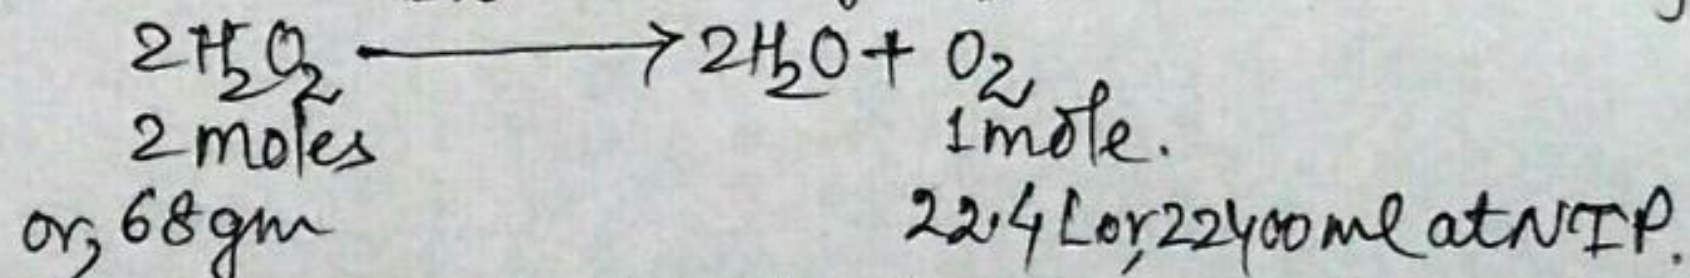 2H₂O₂ ⟶ 2H₂O + O₂
2 moles 1 mole.
or, 68 gm 22.4 L or, 22400 ml at NTP.